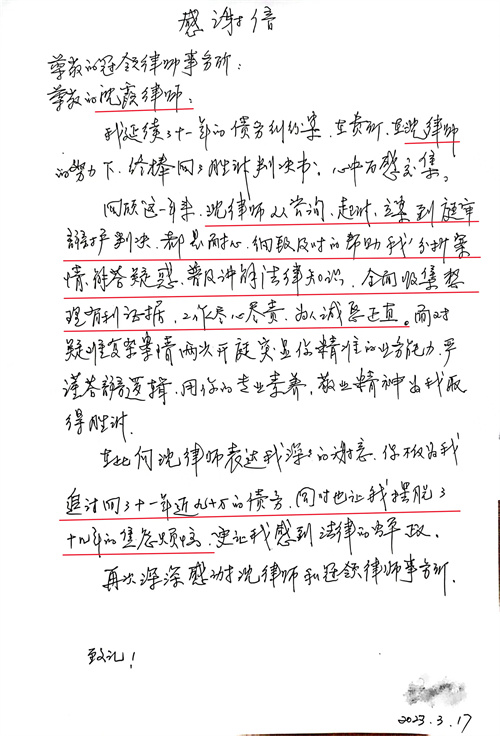 感谢信
尊敬的冠领律师事务所：
尊敬的沈霞律师：
我延续了十一年的债务纠纷案，在贵所，在沈律师
的努力下，终捧回了胜诉判决书，心中百感交集。
回顾这一年来，沈律师从咨询、起诉、立案到庭审
辩护判决，都是耐心、细致及时的帮助我分析案
情，解答疑惑，普及讲解法律知识，全面收集整
理有利证据，工作尽心尽责，为人诚恳正直。面对
疑难复杂案情两次开庭突显你精准的业务能力，严
谨答辩逻辑，用你的专业素养，敬业精神为我取
得胜诉。
在此向沈律师表达我深深的谢意，你不仅为我
追讨回了十一年近九十万的债务，同时也让我摆脱了
十几年的焦虑烦恼，更让我感到法律的公平、
再次深深感谢沈律师和冠领律师事务所。
致礼！
2023.3.17